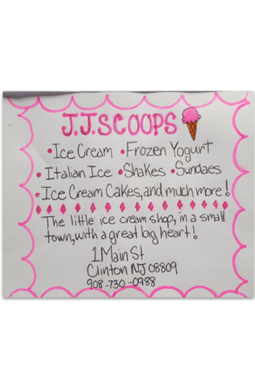 J.J.SCOOPS
•Ice Cream •Frozen Yogurt
•Italian Ice •Shakes •Sundaes
•Ice Cream Cakes, and much more!
The little ice cream shop, in a small
town, with a great big heart!
1 Main St
Clinton NJ 08809
908-730-0988